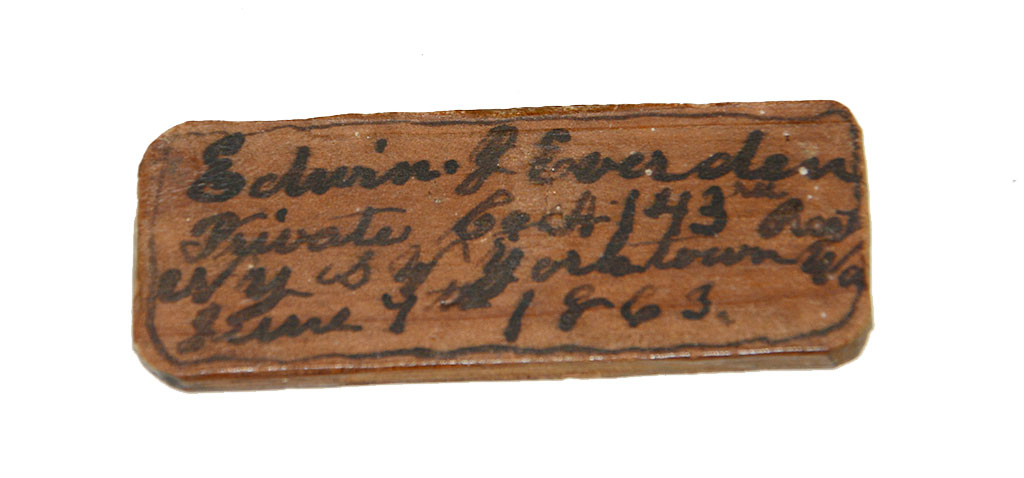 Edwin. J Everden
Private Co A 143rd Regt
N Y S V Yorktown Va
June 7th 1863.